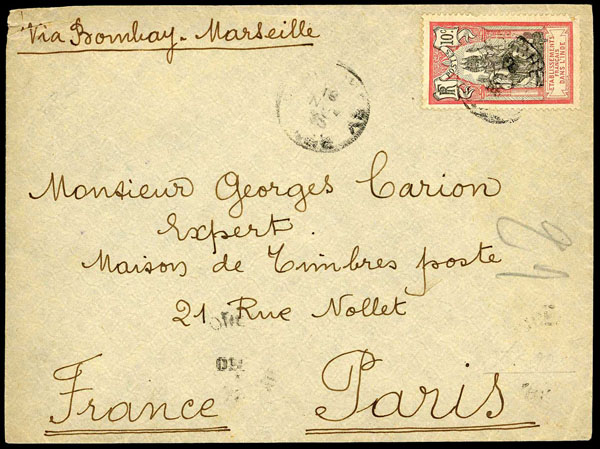 Via Bombay - Marseille
10c.
ETABLISSEMENTS
FRANÇAIS
DANS L'INDE
Monsieur Georges Carion
Expert.
Maison de Timbres poste
21 Rue Nollet
France Paris